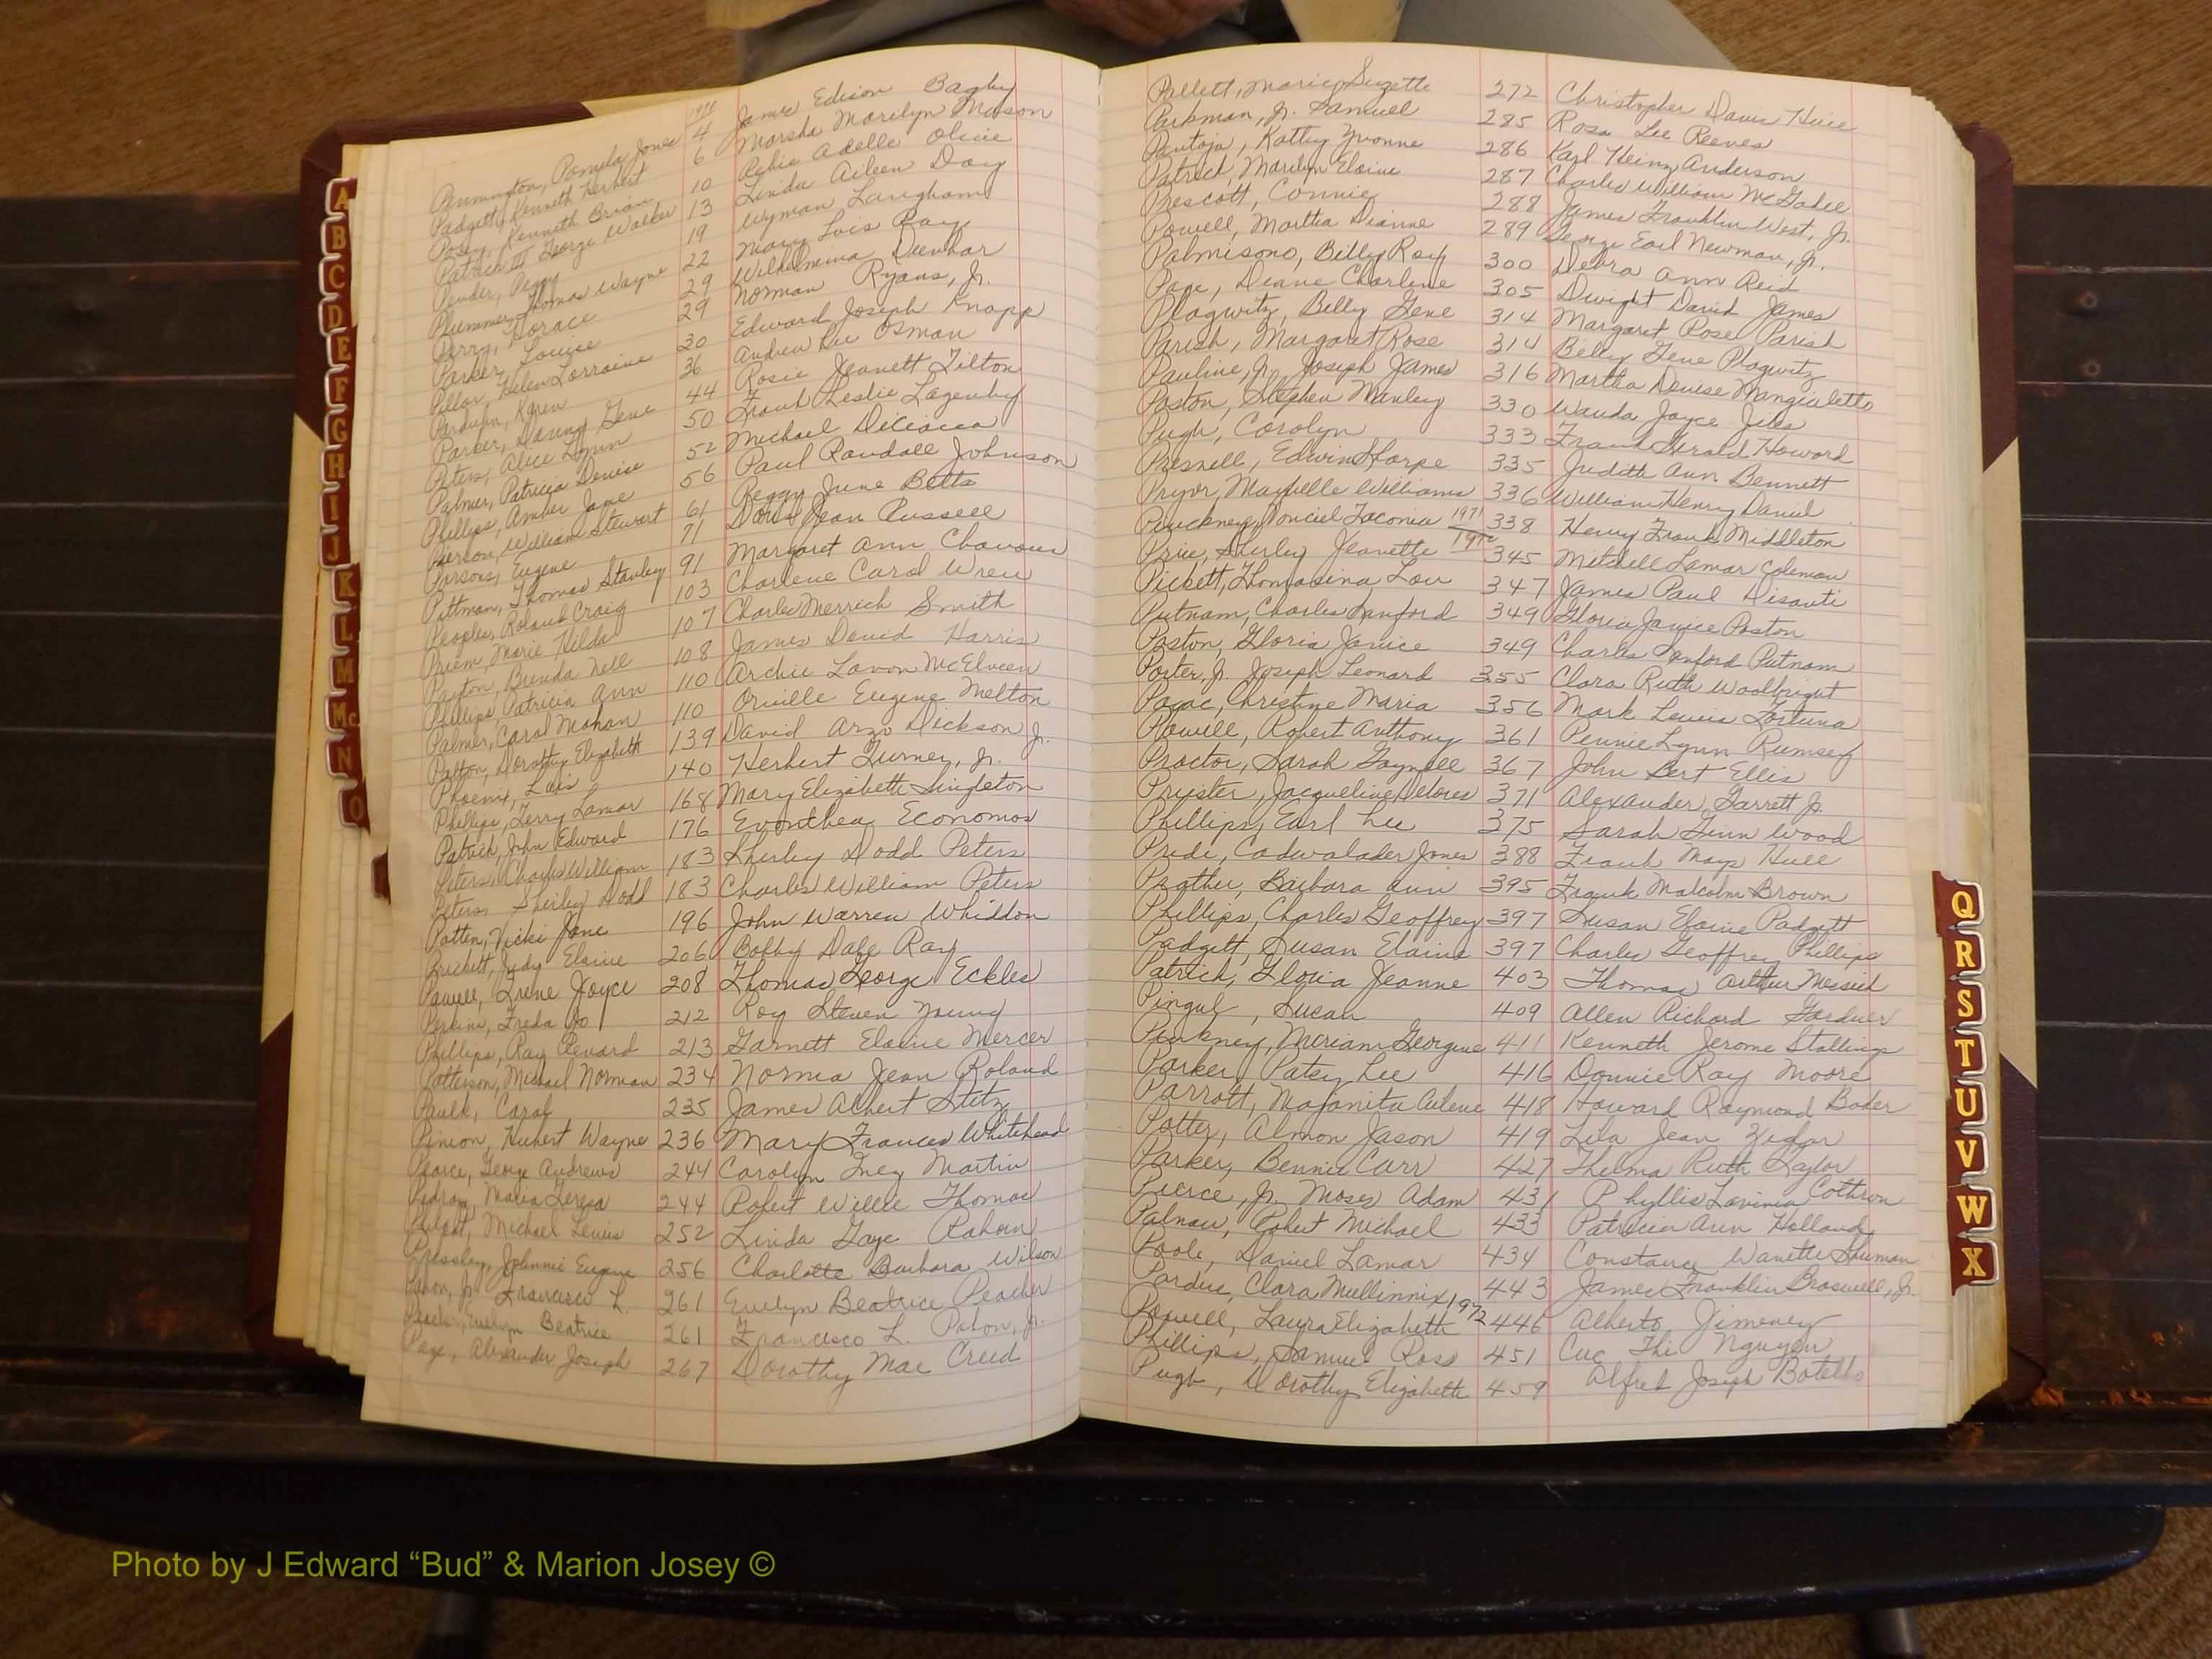 Pennington, Pamela Jones 4 James Edison Bagby
Padgett, Kenneth Herbert 6 Marsha Marilyn Mason
Posey, Kenneth Brian 10 Rebie Adelle Olicie
Patrick III George Walker 13 Linda Aileen Day
Pender, Peggy 19 Wyman Langham
Plummer, Thomas Wayne 22 Mary Lois Ray
Perry, Horace 29 Wilhelmenia Dunbar
Parker, Louise 29 Norman Ryans, Jr.
Pillor Helen Lorraine 30 Edward Joseph Knapp
Parduhn, Karen 36 Andrew Lee Osman
Parker, Danny Gene 44 Rosie Jeanett Tilton
Peters, Alice Lynn 50 Frank Leslie Lazenby
Palmer, Patricia Denise 52 Michael DeCiacca
Phillips, Amber Jane 56 Paul Randall Johnson
Pierson, William Stewart 61 Peggy June Betts
Parsons, Eugene 71 Doris Jean Russell
Pittman, Thomas Stanley 91 Margaret Ann Chavous
Peoples, Roland Craig 103 Charlene Carol Wren
Priem, Marie Hilda 107 Charles Merrick Smith
Payton, Brenda Nell 108 James David Harris
Phillips Patricia Ann 110 Archie Lavon McElveen
Palmer, Carol Mohan 110 Orville Eugene Melton
Patton, Dorothy Elizabeth 139 David Arzo Dickson Jr.
Phoenix, Lois 140 Herbert Turner, Jr.
Phillips, Terry Lamar 168 Mary Elizabeth Singleton
Patrick, John Edward 176 Evonthea Economos
Peters, Charles William 183 Shirley Dodd Peters
Peters, Shirley Dodd 183 Charles William Peters
Patten, Vicki Jane 196 John Warren Whiddon
Prickett, Judy Elaine 206 Bobby Dale Ray
Powell, Irene Joyce 208 Thomas George Eckles
Perkins, Freda Jo 212 Roy Steven Young
Phillips, Ray Renard 213 Garnett Elaine Mercer
Patterson, Michael Norman 234 Norma Jean Roland
Paulk, Carol 235 James Albert Stetz
Pinion, Hubert Wayne 236 Mary Frances Whitehead
Pearce, George Andrews 244 Carolyn Inez Martin
Pedron, Maria Teresa 244 Robert Willie Thomas
Philpot, Michael Lewis 252 Linda Gaye Rahorn
Pressley, Johnnie Eugene 256 Charlotte Barbara Wilson
Pabon, Jr. Francisco L. 261 Evelyn Beatrice Peacher
Peacher, Evelyn Beatrice 261 Francisco L. Pabon, Jr.
Page, Alexander Joseph 267 Dorothy Mae Creed
Pallett, Marie Suzette 272 Christopher Davis Huie
Parkman, Jr. Samuel 285 Rosa Lee Reeves
Pantoja, Kathy Yvonne 286 Karl Heinz Anderson
Patrick, Marilyn Elaine 287 Charles William McGahee
Prescott, Connie 288 James Franklin West, Jr.
Powell, Martha Dianne 289 George Earl Newman, Jr.
Palmisono, Billy Roy 300 Debra Ann Reid
Page, Deane Charlene 305 Dwight David James
Plagwitz, Billy Gene 314 Margaret Rose Parish
Parish, Margaret Rose 314 Billy Gene Plagwitz
Pauline, Jr. Joseph James 316 Martha Denise Mangialetto
Poston, Stephen Manley 330 Wanda Joyce Jiles
Pugh, Carolyn 333 Frank Gerald Howard
Presnell, Edwin Thorpe 335 Judith Ann Bennett
Pryor, Maybelle Williams 336 William Henry Daniel
Pinckney, Ponciel Laconia 1971 338 Henry Frank Middleton
Price, Shirley Jeanette 345 Mitchell Lamar Coleman
Pickett, Thomasina Lou 347 James Paul Disanti
Putnam, Charles Sanford 349 Gloria Janice Poston
Poston, Gloria Janice 349 Charles Sanford Putnam
Porter, Jr. Joseph Leonard 355 Clara Ruth Woolbright
Pogac, Christine Maria 356 Mark Lewis Fortuna
Powell, Robert Anthony 361 Pennie Lynn Rumsey
Proctor, Sarah Gaynelle 367 John Bert Ellis
Pryster, Jacqueline Delores 371 Alexander Garrett Jr.
Phillips, Earl Lee 375 Sarah Ginn Wood
Pride, Cadwalader Jones 388 Frank Mays Hull
Prather, Barbara Ann 395 Frank Malcolm Brown
Phillips, Charles Geoffrey 397 Susan Elaine Padgett
Padgett, Susan Elaine 397 Charles Geoffrey Phillips
Patrick, Gloria Jeanne 403 Thomas Arthur Messick
Pingul, Susan 409 Allen Richard Gardner
Pinkney, Meriam Georgine 411 Kenneth Jerome Stallings
Parker, Patsy Lee 416 Donnie Ray Moore
Parrott, Majonita Arlene 418 Howard Raymond Baker
Potter, Almon Jason 419 Lila Jean Zidar
Parker, Bennie Carr 427 Thelma Ruth Taylor
Pierce, Jr. Moses Adam 431 Phyllis Lavinia Cothron
Palnau, Robert Michael 433 Patricia Ann Holland
Poole, Daniel Lamar 434 Constance Wanette Shuman
Pardue, Clara Mullinnix 443 James Franklin Braswell, Jr.
Powell, Laura Elizabeth 1972 446 Alberto Jimenez
Phillips, Samuel Ross 451 Cuc Thi Nguyen
Pugh, Dorothy Elizabeth 459 Alfred Joseph Botello
A
B
C
D
E
F
G
H
I
J
K
L
M
Mc
N
O
Q
R
S
T
U
V
W
X
Photo by J Edward “Bud” & Marion Josey ©